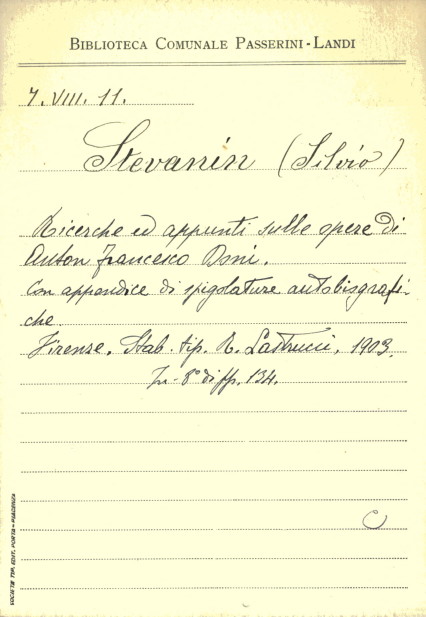 BIBLIOTECA COMUNALE PASSERINI-LANDI
7. VIII. 11.
Stevanin (Silvio)
Ricerche ed appunti sulle opere di
Anton Francesco Doni.
Con appendice di spigolature autobiografi-
che
Firenze. Stab. tip. R. Lastrucci, 1903.
In-8° di pp. 134.
C
SOCIETÀ TIP. EDIT. PORTA-PIACENZA